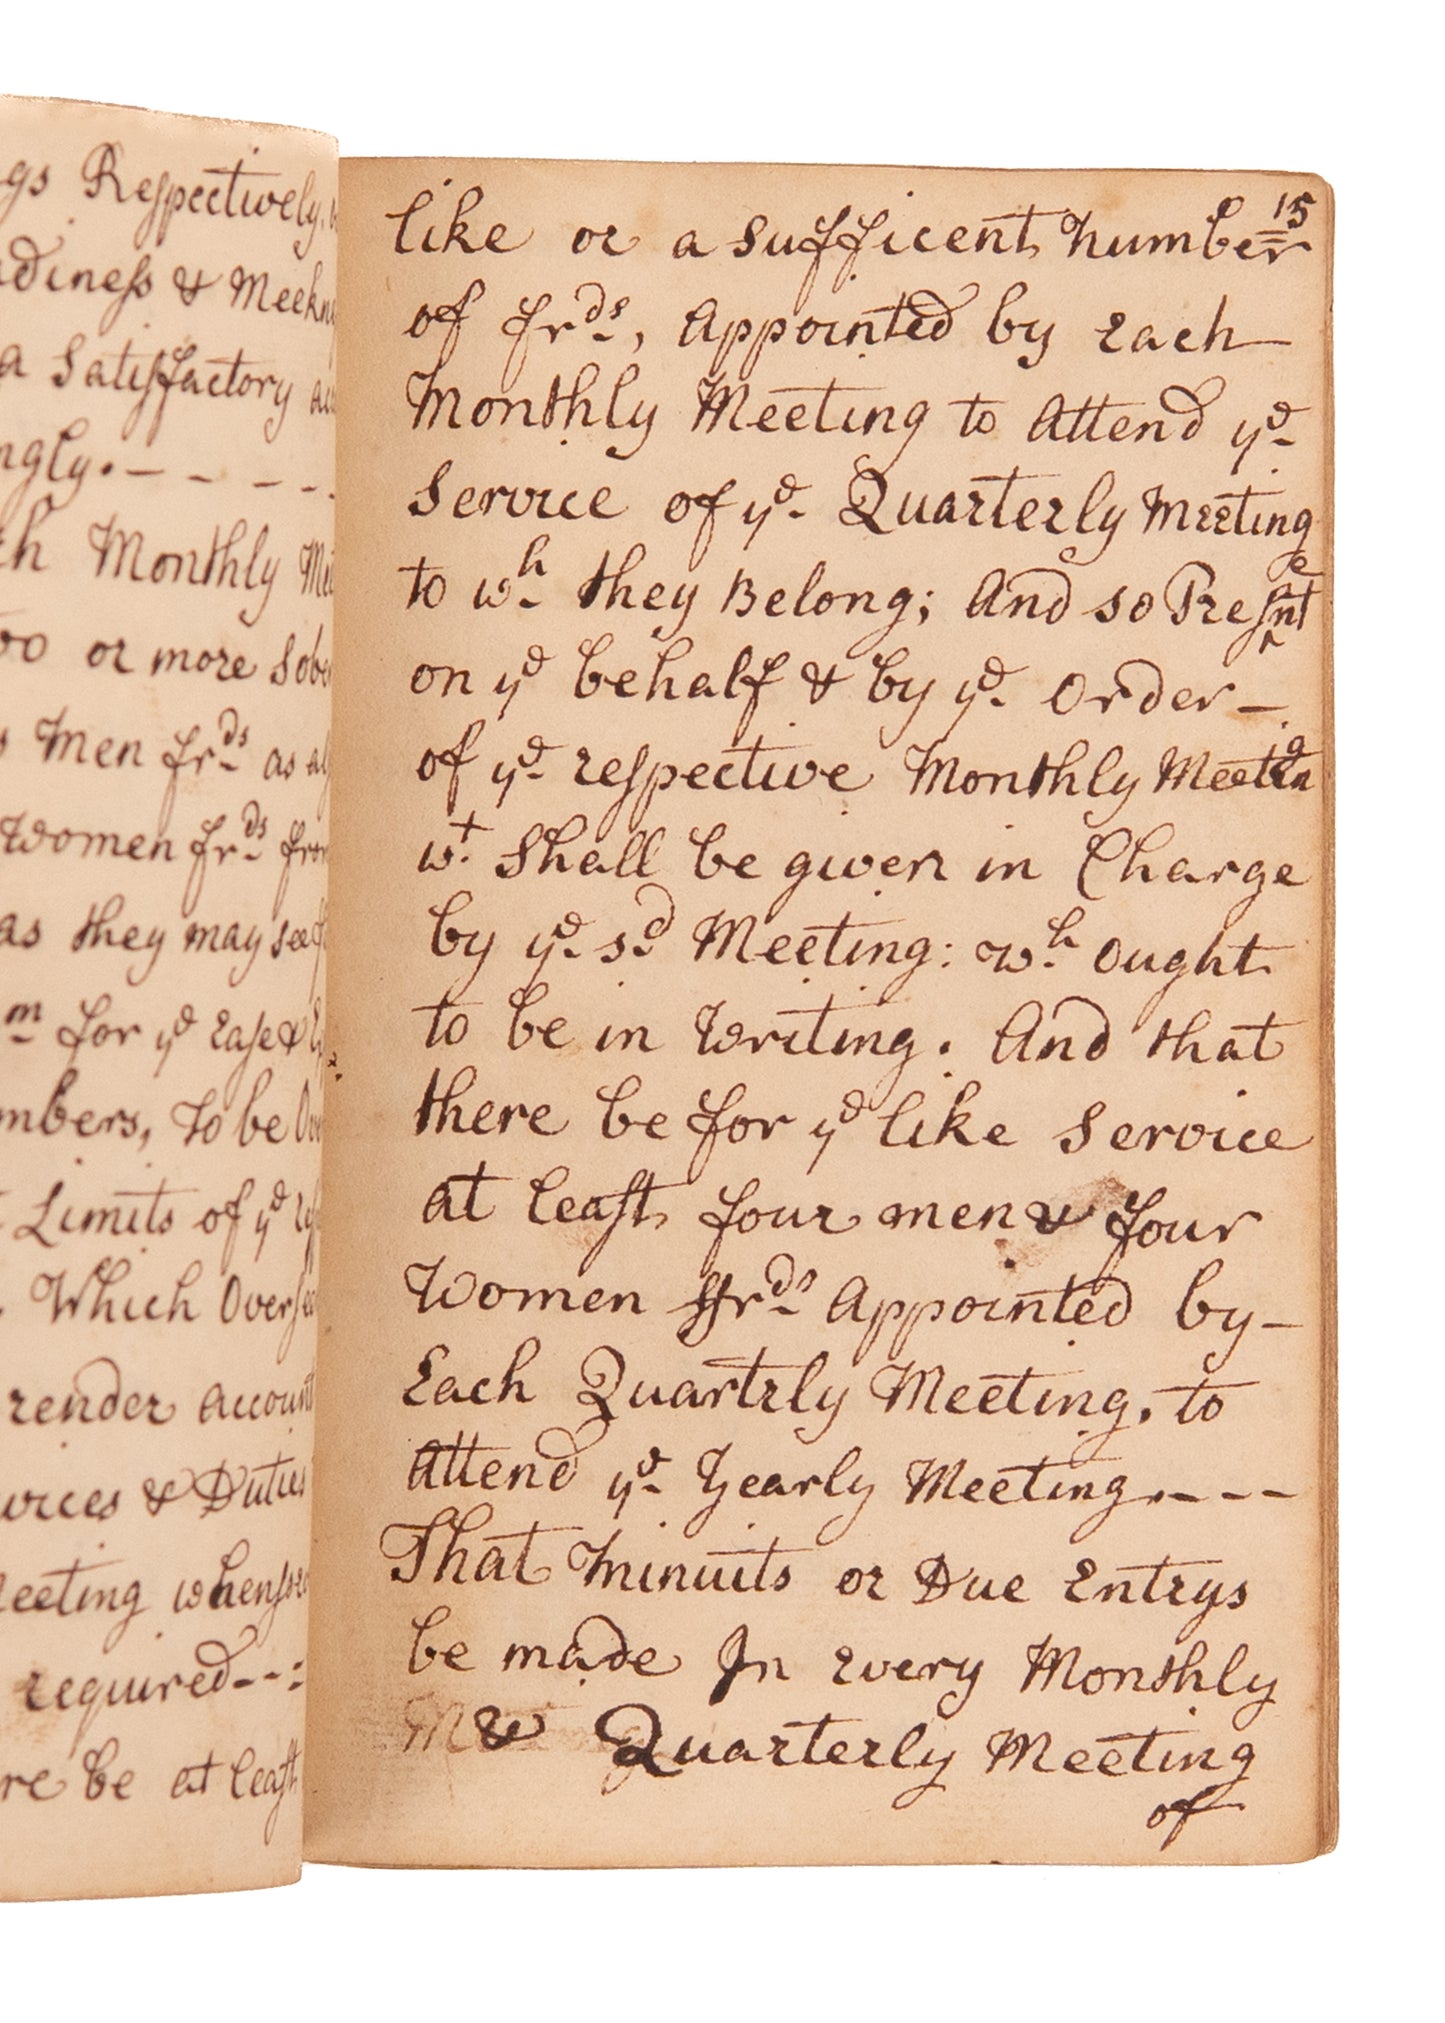 gs Respectively,
diness & Meekn
a Satisfactory
ngly. — - - - -
h Monthly
oo or more Sob
Men frds as al
Women frds from
as they may see
m for ye Ease &
mbers, To be
Limits of ye
Which Overse
render account
vices & Duties
eeting whenso
required - - :
re be at least
15
like or a sufficent Number
of frds, Appointed by Each
Monthly Meeting to Attend ye
Service of ye Quarterly Meeting
to wh they Belong; And so Present
on ye behalf & by ye Order —
of ye respective Monthly Meeting
wt Shall be given in Charge
by ye sd Meeting: wh Ought
to be in Writing. And that
there be for ye like Service
at least four men & four
Women ffrds Appointed by —
Each Quartrly Meeting, to
Attend ye Yearly Meeting. - - -
That Minuits or Due Entrys
be made In Every Monthly
M & Quarterly Meeting
of